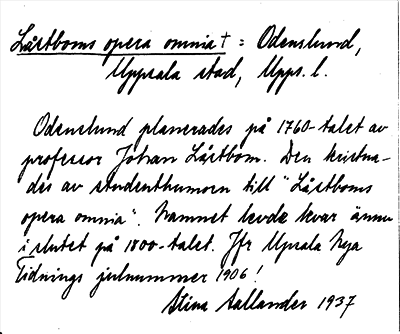 Låstboms opera omnia † = Odenslund,
Uppsala stad, Upps. l.
Odenslund planerades på 1760-talet av
professor Johan Låstbom. Den kristna-
des av studenthumorn till "Låstboms
opera omnia". Namnet levde kvar ännu
i slutet på 1800-talet. Jfr Upsala Nya
Tidnings julnummer 1906!
Stina Aallander 1937